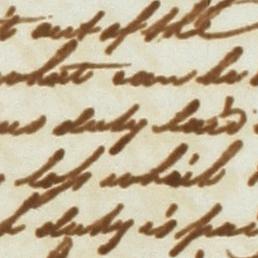 t out of the
what can be
us duty laid
loss which
duty is pai